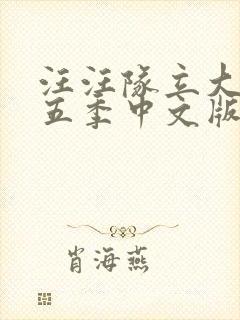 汪汪队立大
五季中文版
肖海燕